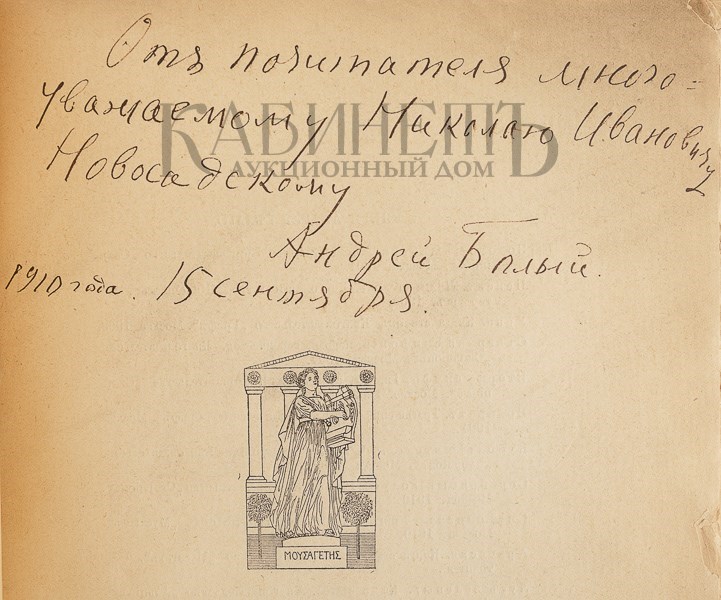 Отъ почитателя много=
уважаемому Николаю Ивановичу
Новосадскому
Андрей Бѣлый.
1910 года. 15 сентября.
КАБИНЕТЪ
АУКЦИОННЫЙ ДОМ
ΜΟΥΣΑΓΕΤΗΣ